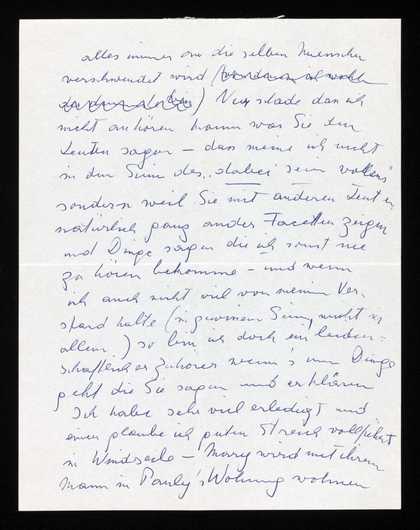 alles immer an die selben Menschen
verschwendet wird
) Nur schade dass ich
nicht anhören kann was Sie den
Leuten sagen – dass meine ich nicht
in dem Sinn des „dabei sein wollens"
sondern weil Sie mit anderen Leuten
natürlich ganz andere Facetten zeigen
und Dinge sagen die ich sonst nie
zu hören bekomme – und wenn
ich auch nicht viel von meinem Ver-
stand halte (in gewissem Sinn, nicht in
allem.) so bin ich doch ein leiden-
schaftlicher Zuhörer wenn's um Dinge
geht die Sie sagen und erklären
Ich habe sehr viel erledigt und
einen glaube ich guten Streich vollführt
in – Mary wird mit ihrem
Mann in Pauly's Wohnung wohnen